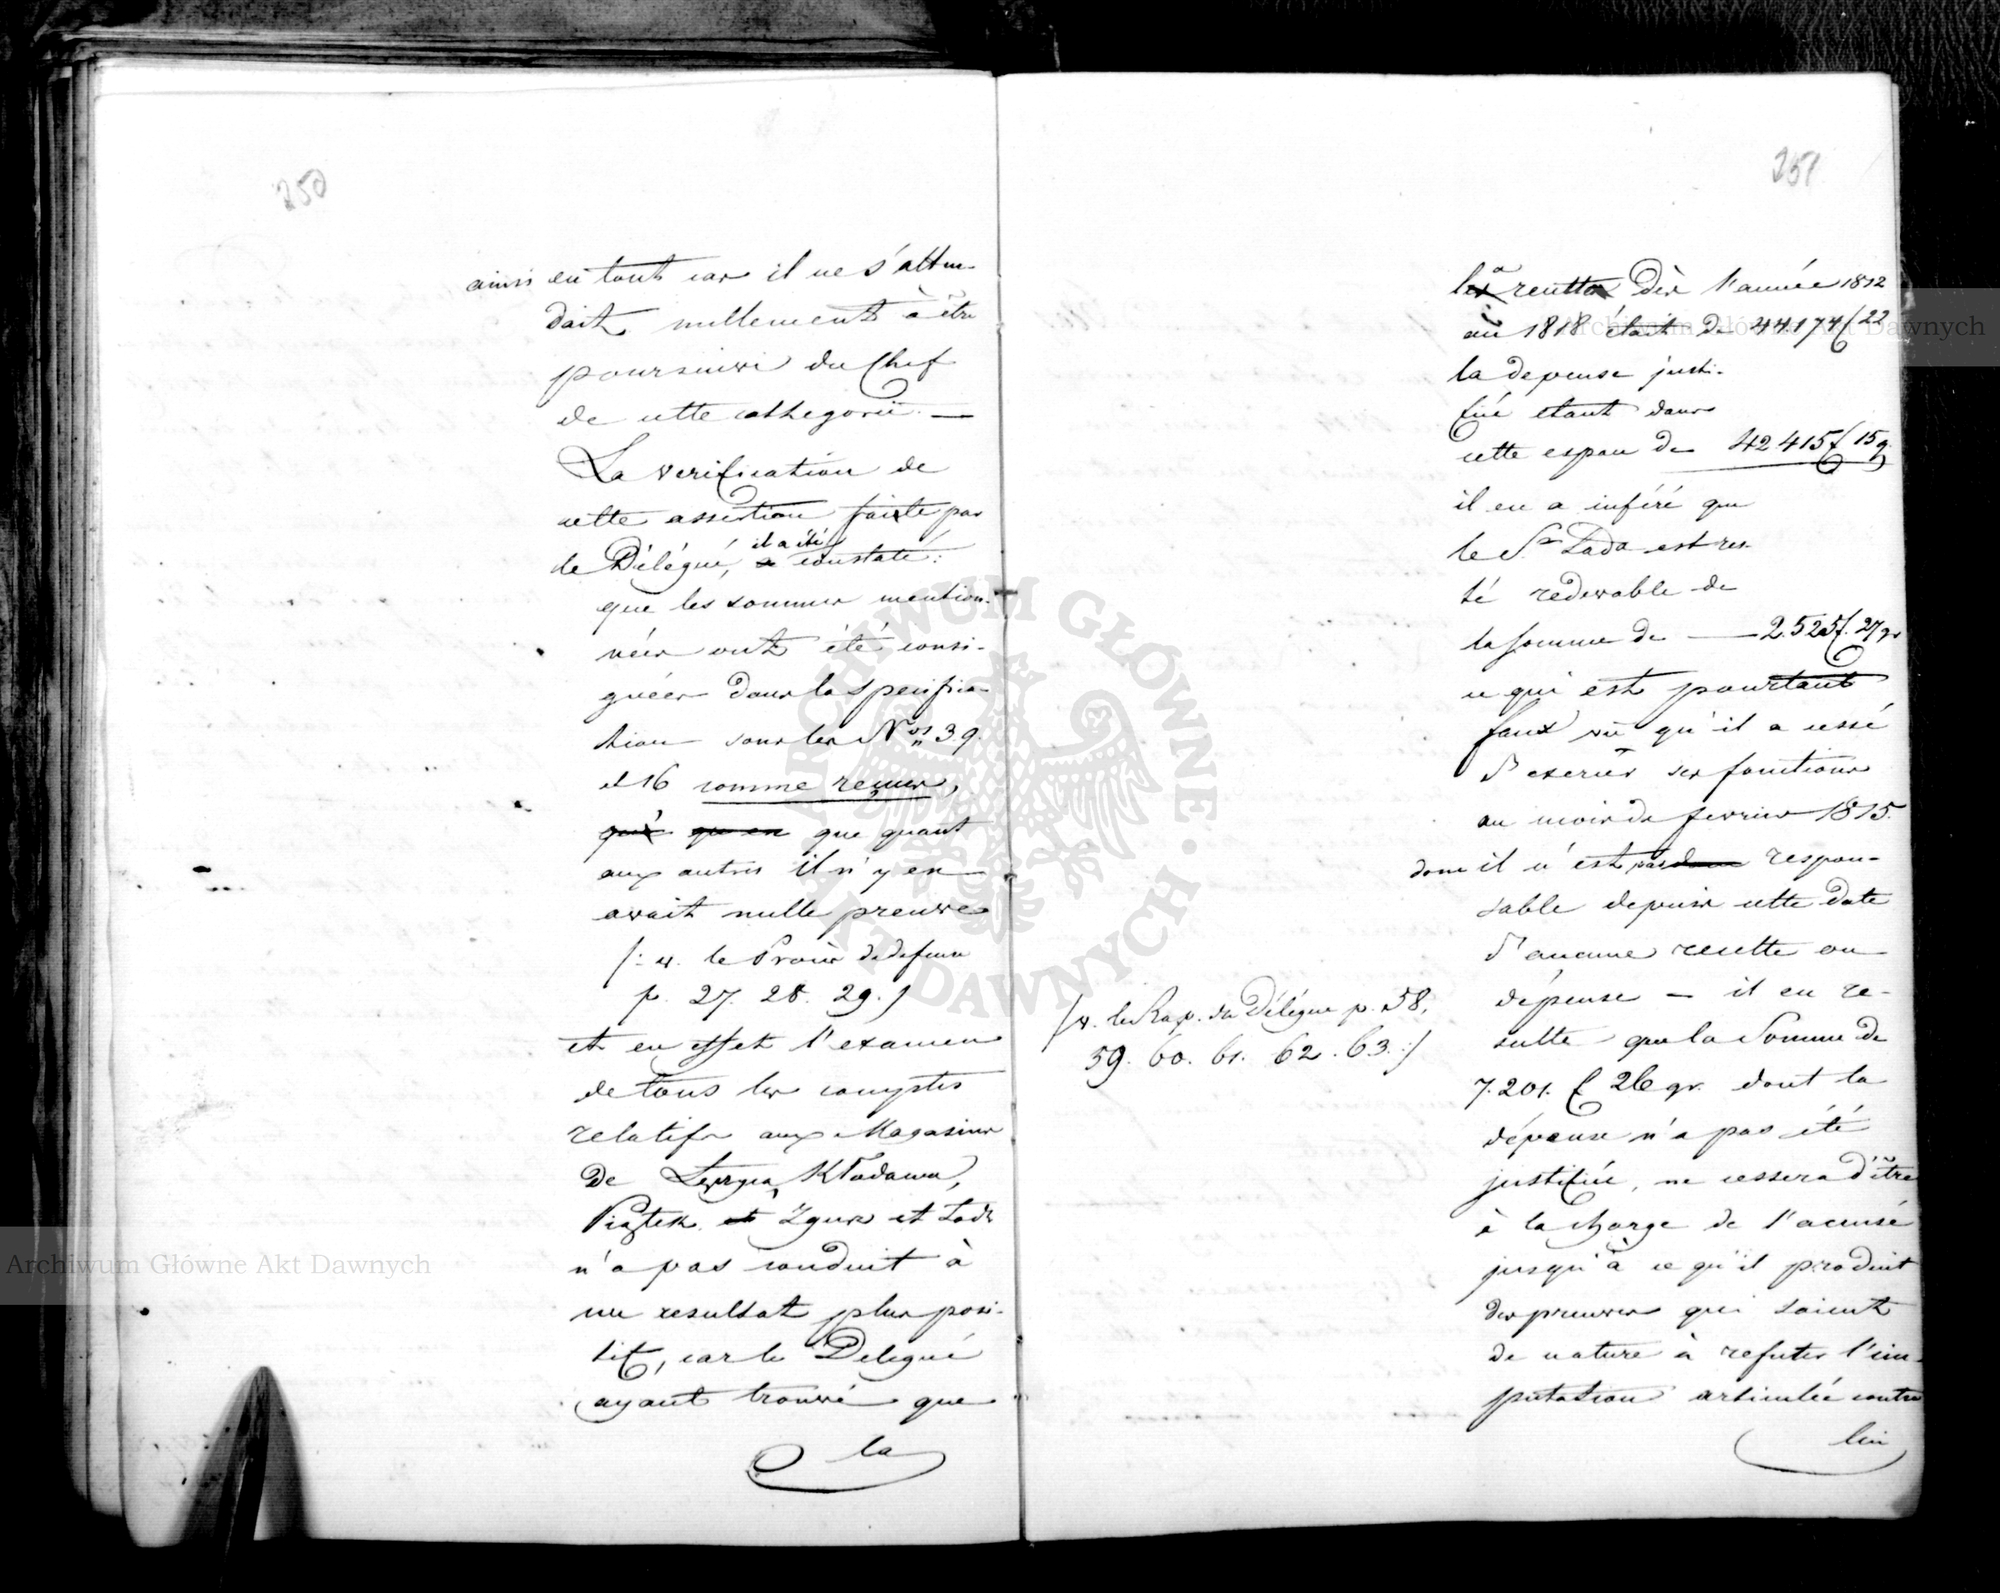 250
ainsi en tout car il ne s'atten-
dait nullement à être
poursuivi du Chef
de cette cathegorie. —
La verification de
cette assertion faite par
le Délégué, il a été constaté:
que les sommes mention-
nées ont été consi-
gnées dans la specifica-
tion sous les Nos 39.
et 16 comme reçues,
que quant
aux autres il n'y en
avait nulle preuve
/: v. le Procès de defense
p. 27. 28. 29. /
et en effet l'examen
de tous les comptes
relatifs aux Magasins
de Kłodawa,
Piątek, Zgierz et Lodz
n'a pas conduit à
un resultat plus posi-
tif, car le Delegué
ayant trouvé que
la
251
la recette dès l'année 1812
au 1818 était de 44174 f 22
la depense justi-
fiée etant dans
cette espace de 42.415 f 15 g.
il en a inféré que
le Sr Lada est res-
té redevable de
la somme de — 2.525 f. 27 gr
ce qui est pourtant
faux vû qu'il a cessé
d'exercer ses fonctions
au mois de fevrier 1815.
donc il n'est pas respon-
sable depuis cette date
d'aucune recette ou
dépense — il en re-
sulte que la Somme de
7.201. f 26 gr. dont la
dépense n'a pas été
justifiée, ne cessera d'être
à la charge de l'accusé
jusqu'à ce qu'il produit
des preuves qui soient
de nature à refuter l'im-
putation articulée contre
lui
/v. le Rap. du Délégué p. 58,
59. 60. 61. 62. 63. :/
Archiwum Główne Akt Dawnych
Archiwum Główne Akt Dawnych
ARCHIWUM GŁÓWNE AKT DAWNYCH